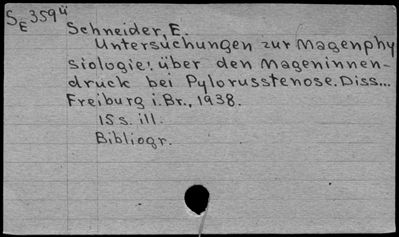 SE 359ü
Schneider, E.
Untersuchungen zur Magenphy
siologie: über den Mageninnen-
druck bei Pylorusstenose. Diss...
Freiburg i. Br., 1938.
15 s. ill.
Bibliogr.